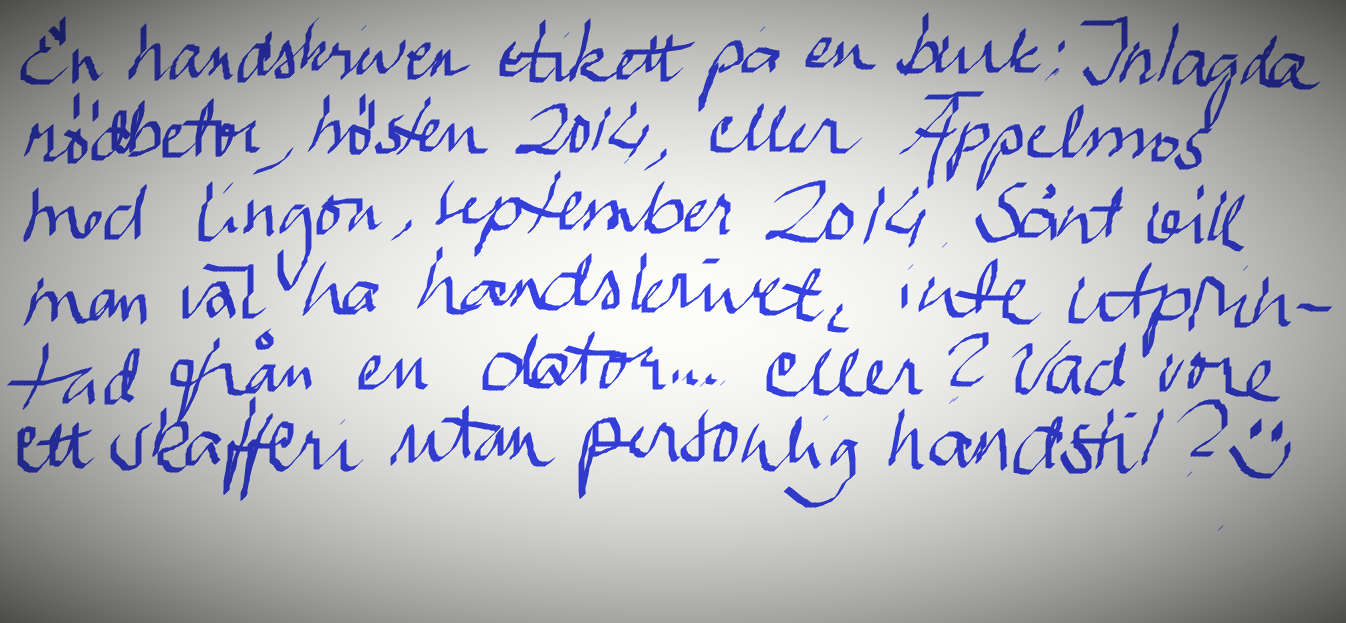 En handskriven etikett på en burk: Inlagda
rödbetor, hösten 2014, eller Äppelmos
med lingon, september 2014. Sånt vill
man väl ha handskrivet, inte utprin-
tad från en dator... eller? Vad vore
ett skafferi utan personlig handstil? :)